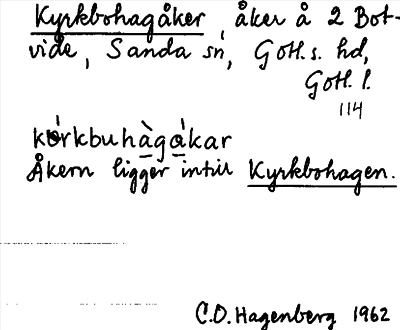 Kyrkbohagåker, åker å 2 Bot-
vide, Sanda sn, Gotl. s. hd,
Gotl. l.
114
kǿrkbuhàgàkar
Åkern ligger intill Kyrkbohagen.
C.O. Hagenberg 1962